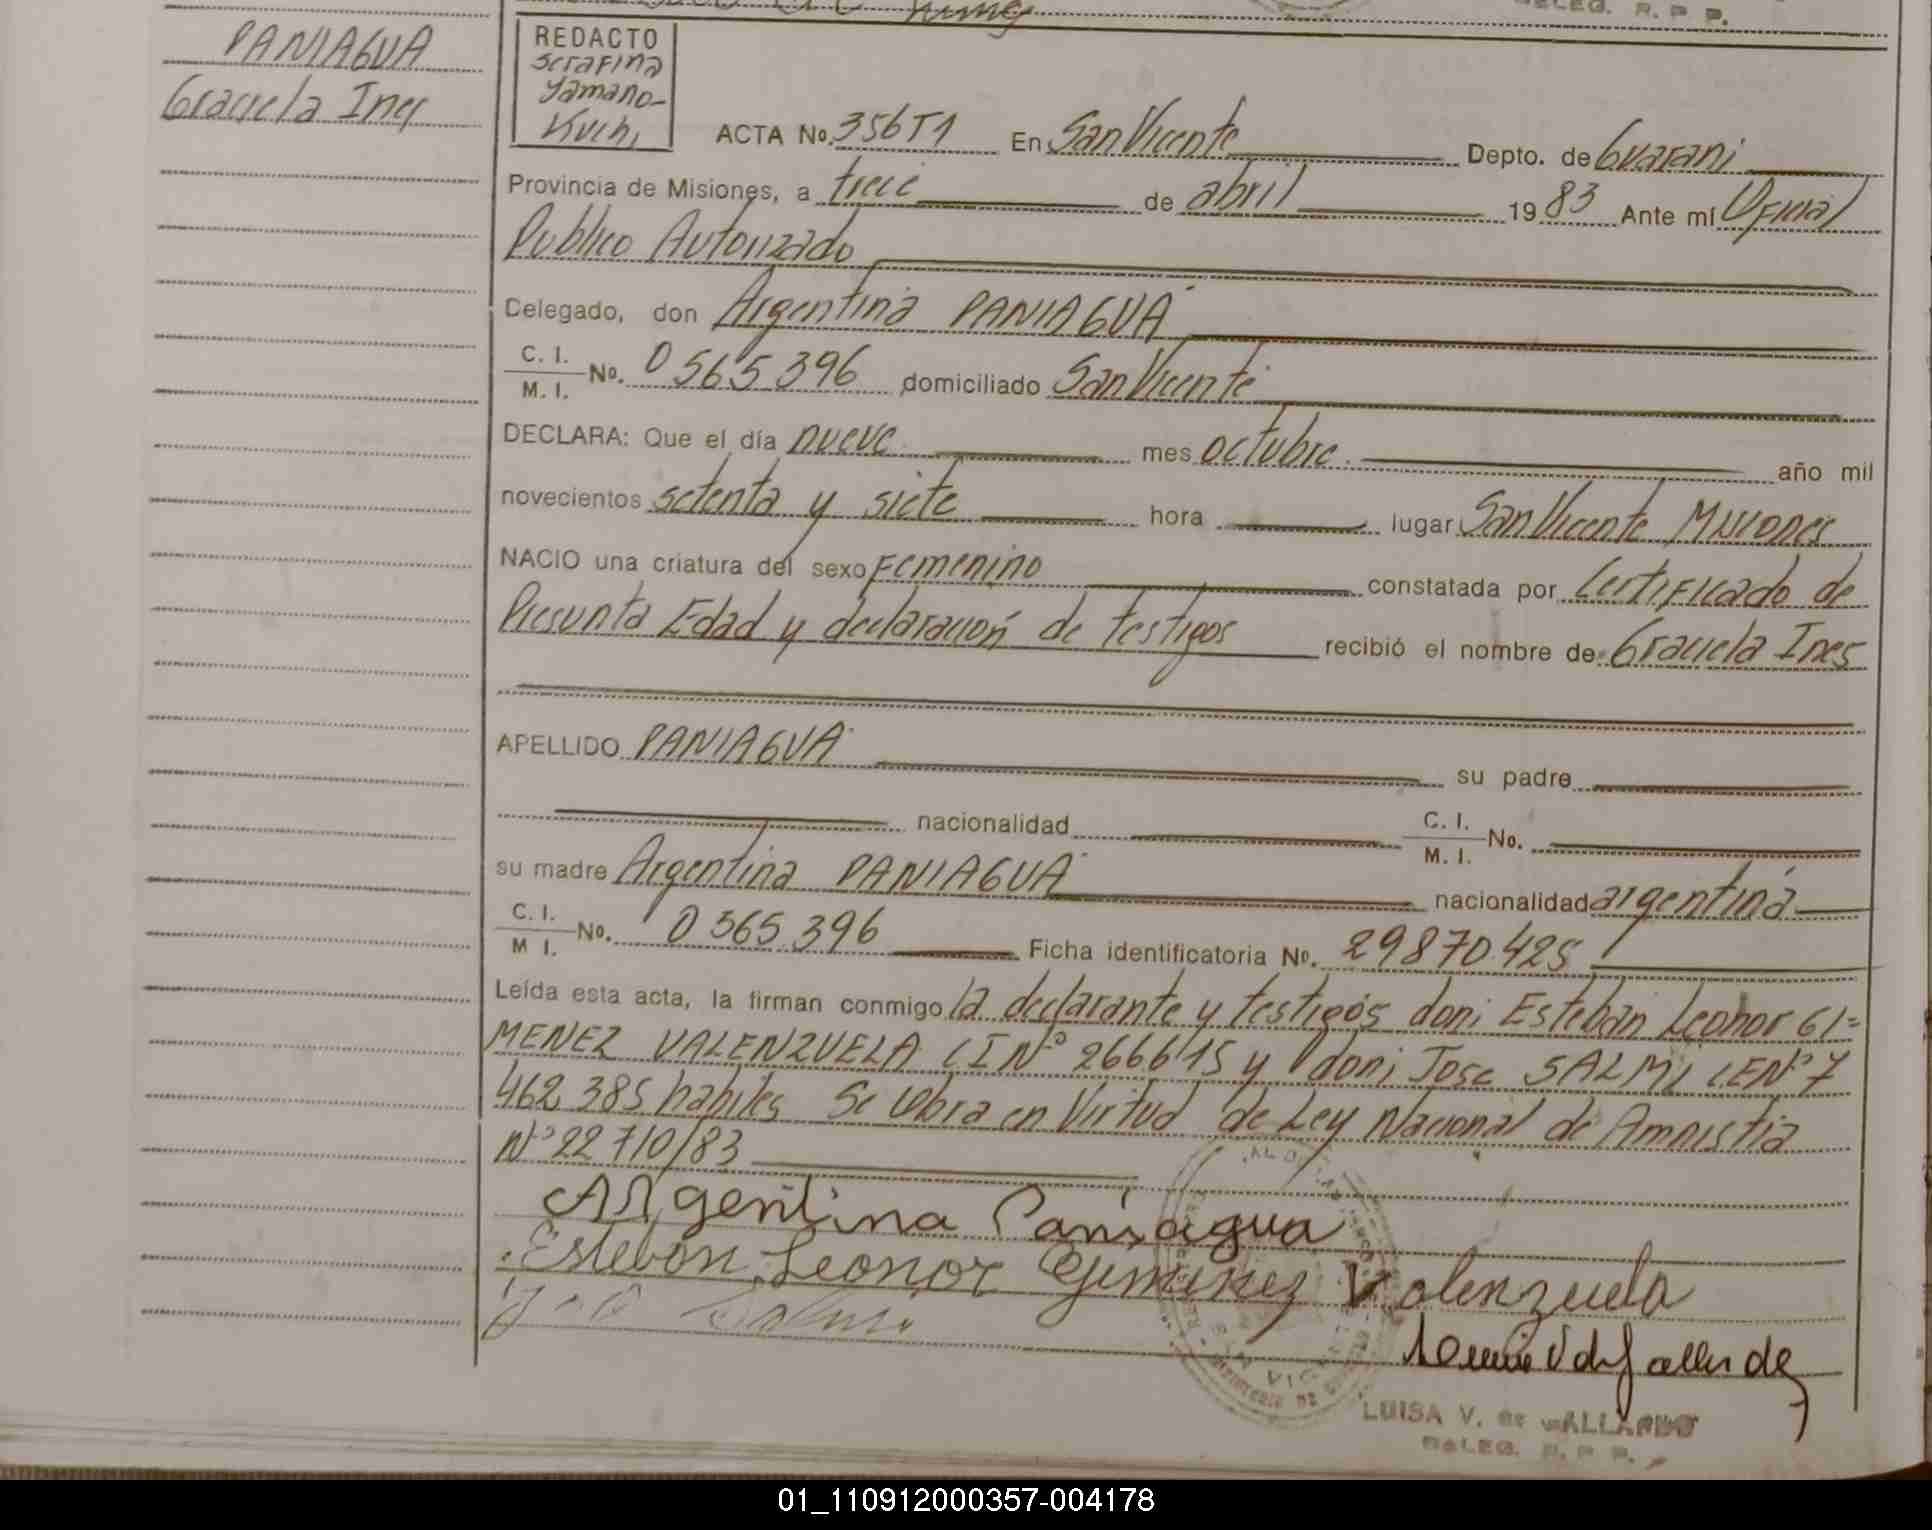 DELEG. R. P P.
PANIAGUA
Graciela Ines
REDACTO
Serafina
Yamano-
Kuchi
ACTA No. 356 T1 En San Vicente Depto. de Guarani
Provincia de Misiones, a trece de abril 1983 Ante mí Oficial
Publico Autorizado
Delegado, don Argentina PANIAGUA
C. I.
M. I. No. 0 565 396 domiciliado San Vicente
DECLARA: Que el día nueve mes octubre año mil
novecientos setenta y siete hora lugar San Vicente Misiones
NACIO una criatura del sexo Femenino constatada por Certificado de
Presunta Edad y declaración de testigos recibió el nombre de Graciela Ines
APELLIDO PANIAGUA su padre
nacionalidad C. I.
M. I. No.
su madre Argentina PANIAGUA nacionalidad argentina
C. I.
M I. No. 0 565 396 Ficha identificatoria No. 29870.425
Leída esta acta, la firman conmigo la declarante y testigos don: Esteban Leonor GI=
MENEZ VALENZUELA CI Nº 266615 y don: Jose SALMI L.E Nº 7
462 385 habiles Se labra en Virtud de Ley Nacional de Amnistia
Nº 22 710/83
Argentina Paniagua
Esteban Leonor Gimenez Valenzuela
LUISA V. DE GALLARDO
DELEG. R. P P.
01_110912000357-004178